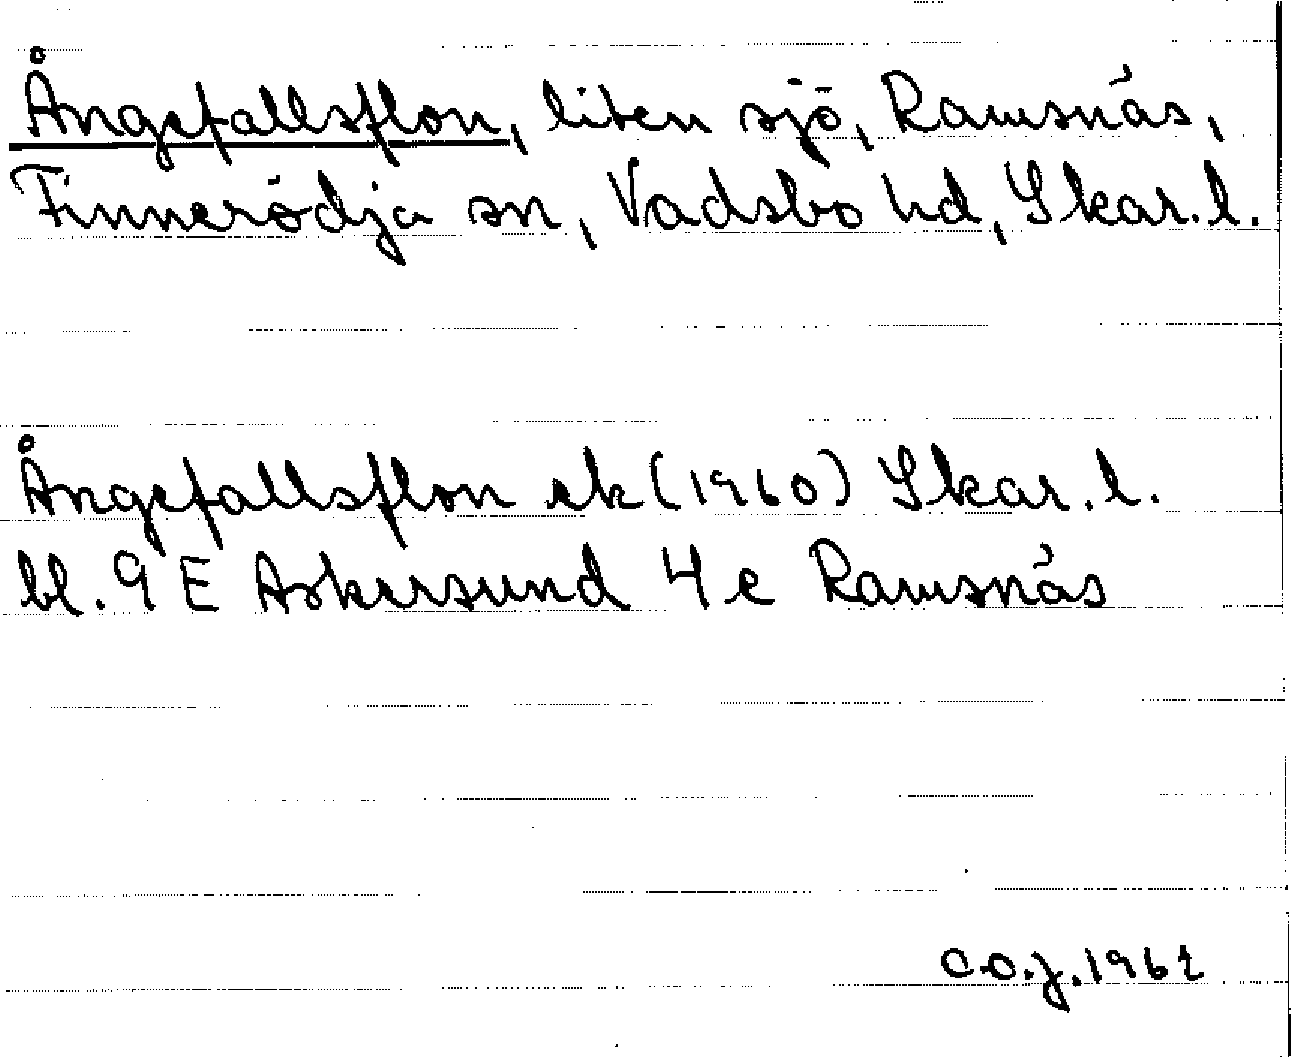 Ångefallsflon, liten sjö, Ramsnäs,
Finnerödja sn, Vadsbo hd, Skar. l.
Ångefallsflon ek (1960) Skar. l.
bl. 9 E Askersund 4 e Ramsnäs
C.O.J. 1962